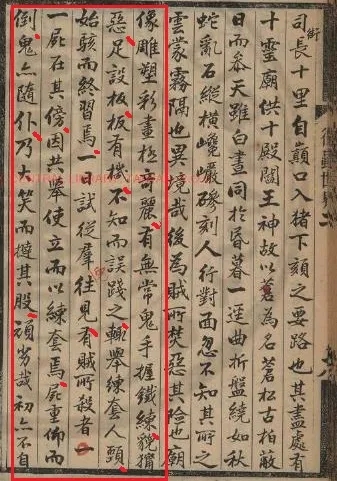 街
司長十里自巔口入猪下頦之要路也其盡處有
十靈廟供十殿閻王神故以蒼為名蒼松古柏蔽
日而參天雖白晝同於昏暮一逕曲折盤繞如秋
蛇亂石縱橫巉巖磣刻人行對面忽不知其所之
雲蒙霧隔也異境哉後為賊所焚惡其險也廟
像雕塑彩畫極奇麗有無常鬼手握鐵練貌獰
惡足設板板有機不知而誤踐之輒舉練套人頸
始駭而終習焉一日試從群往見有賊所殺者一
一屍在其傍因共舉使立而以練套焉屍重仰而
倒鬼亦隨仆乃大笑而撻其股頑劣哉初亦不自